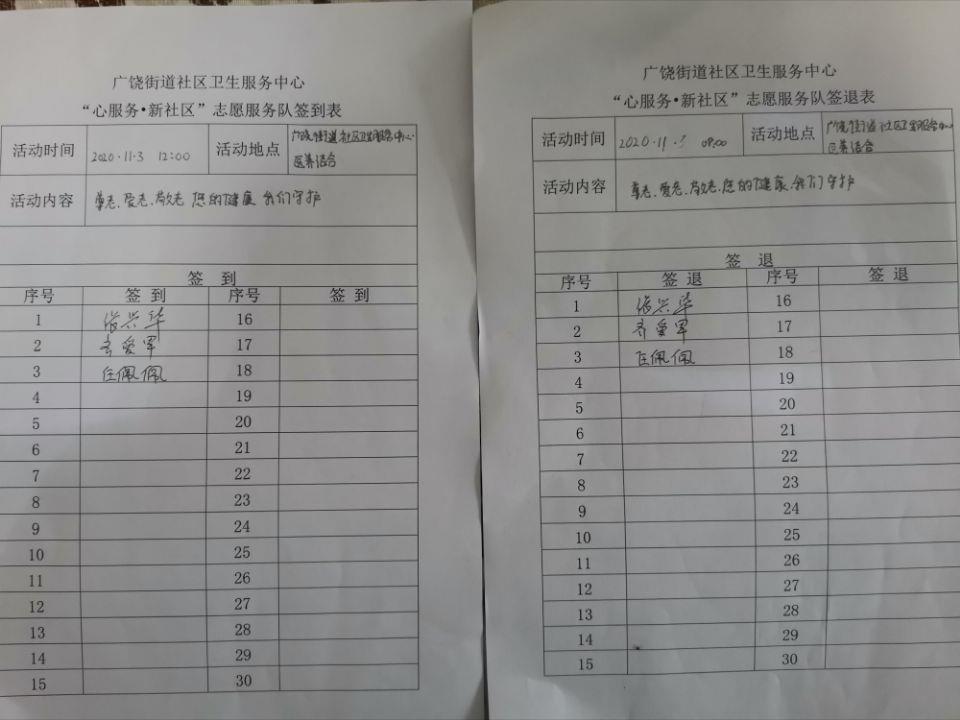 广饶街道社区卫生服务中心
“心服务•新社区”志愿服务队签到表
活动时间 2020.11.3 12:00 活动地点 广饶街道社区卫生服务中心
医养结合
活动内容 尊老、爱老、敬老 您的健康 我们守护
签 到
序号 签 到 序号 签 到
1 张兴华 16
2 齐爱军 17
3 任佩佩 18
4 19
5 20
6 21
7 22
8 23
9 24
10 25
11 26
12 27
13 28
14 29
15 30
广饶街道社区卫生服务中心
“心服务•新社区”志愿服务队签退表
活动时间 2020.11.3 活动地点 广饶街道社区卫生服务中心
医养结合
活动内容 尊老、爱老、敬老、您的健康、我们守护
签 退
序号 签 退 序号 签 退
1 张兴华 16
2 齐爱军 17
3 任佩佩 18
4 19
5 20
6 21
7 22
8 23
9 24
10 25
11 26
12 27
13 28
14 29
15 30